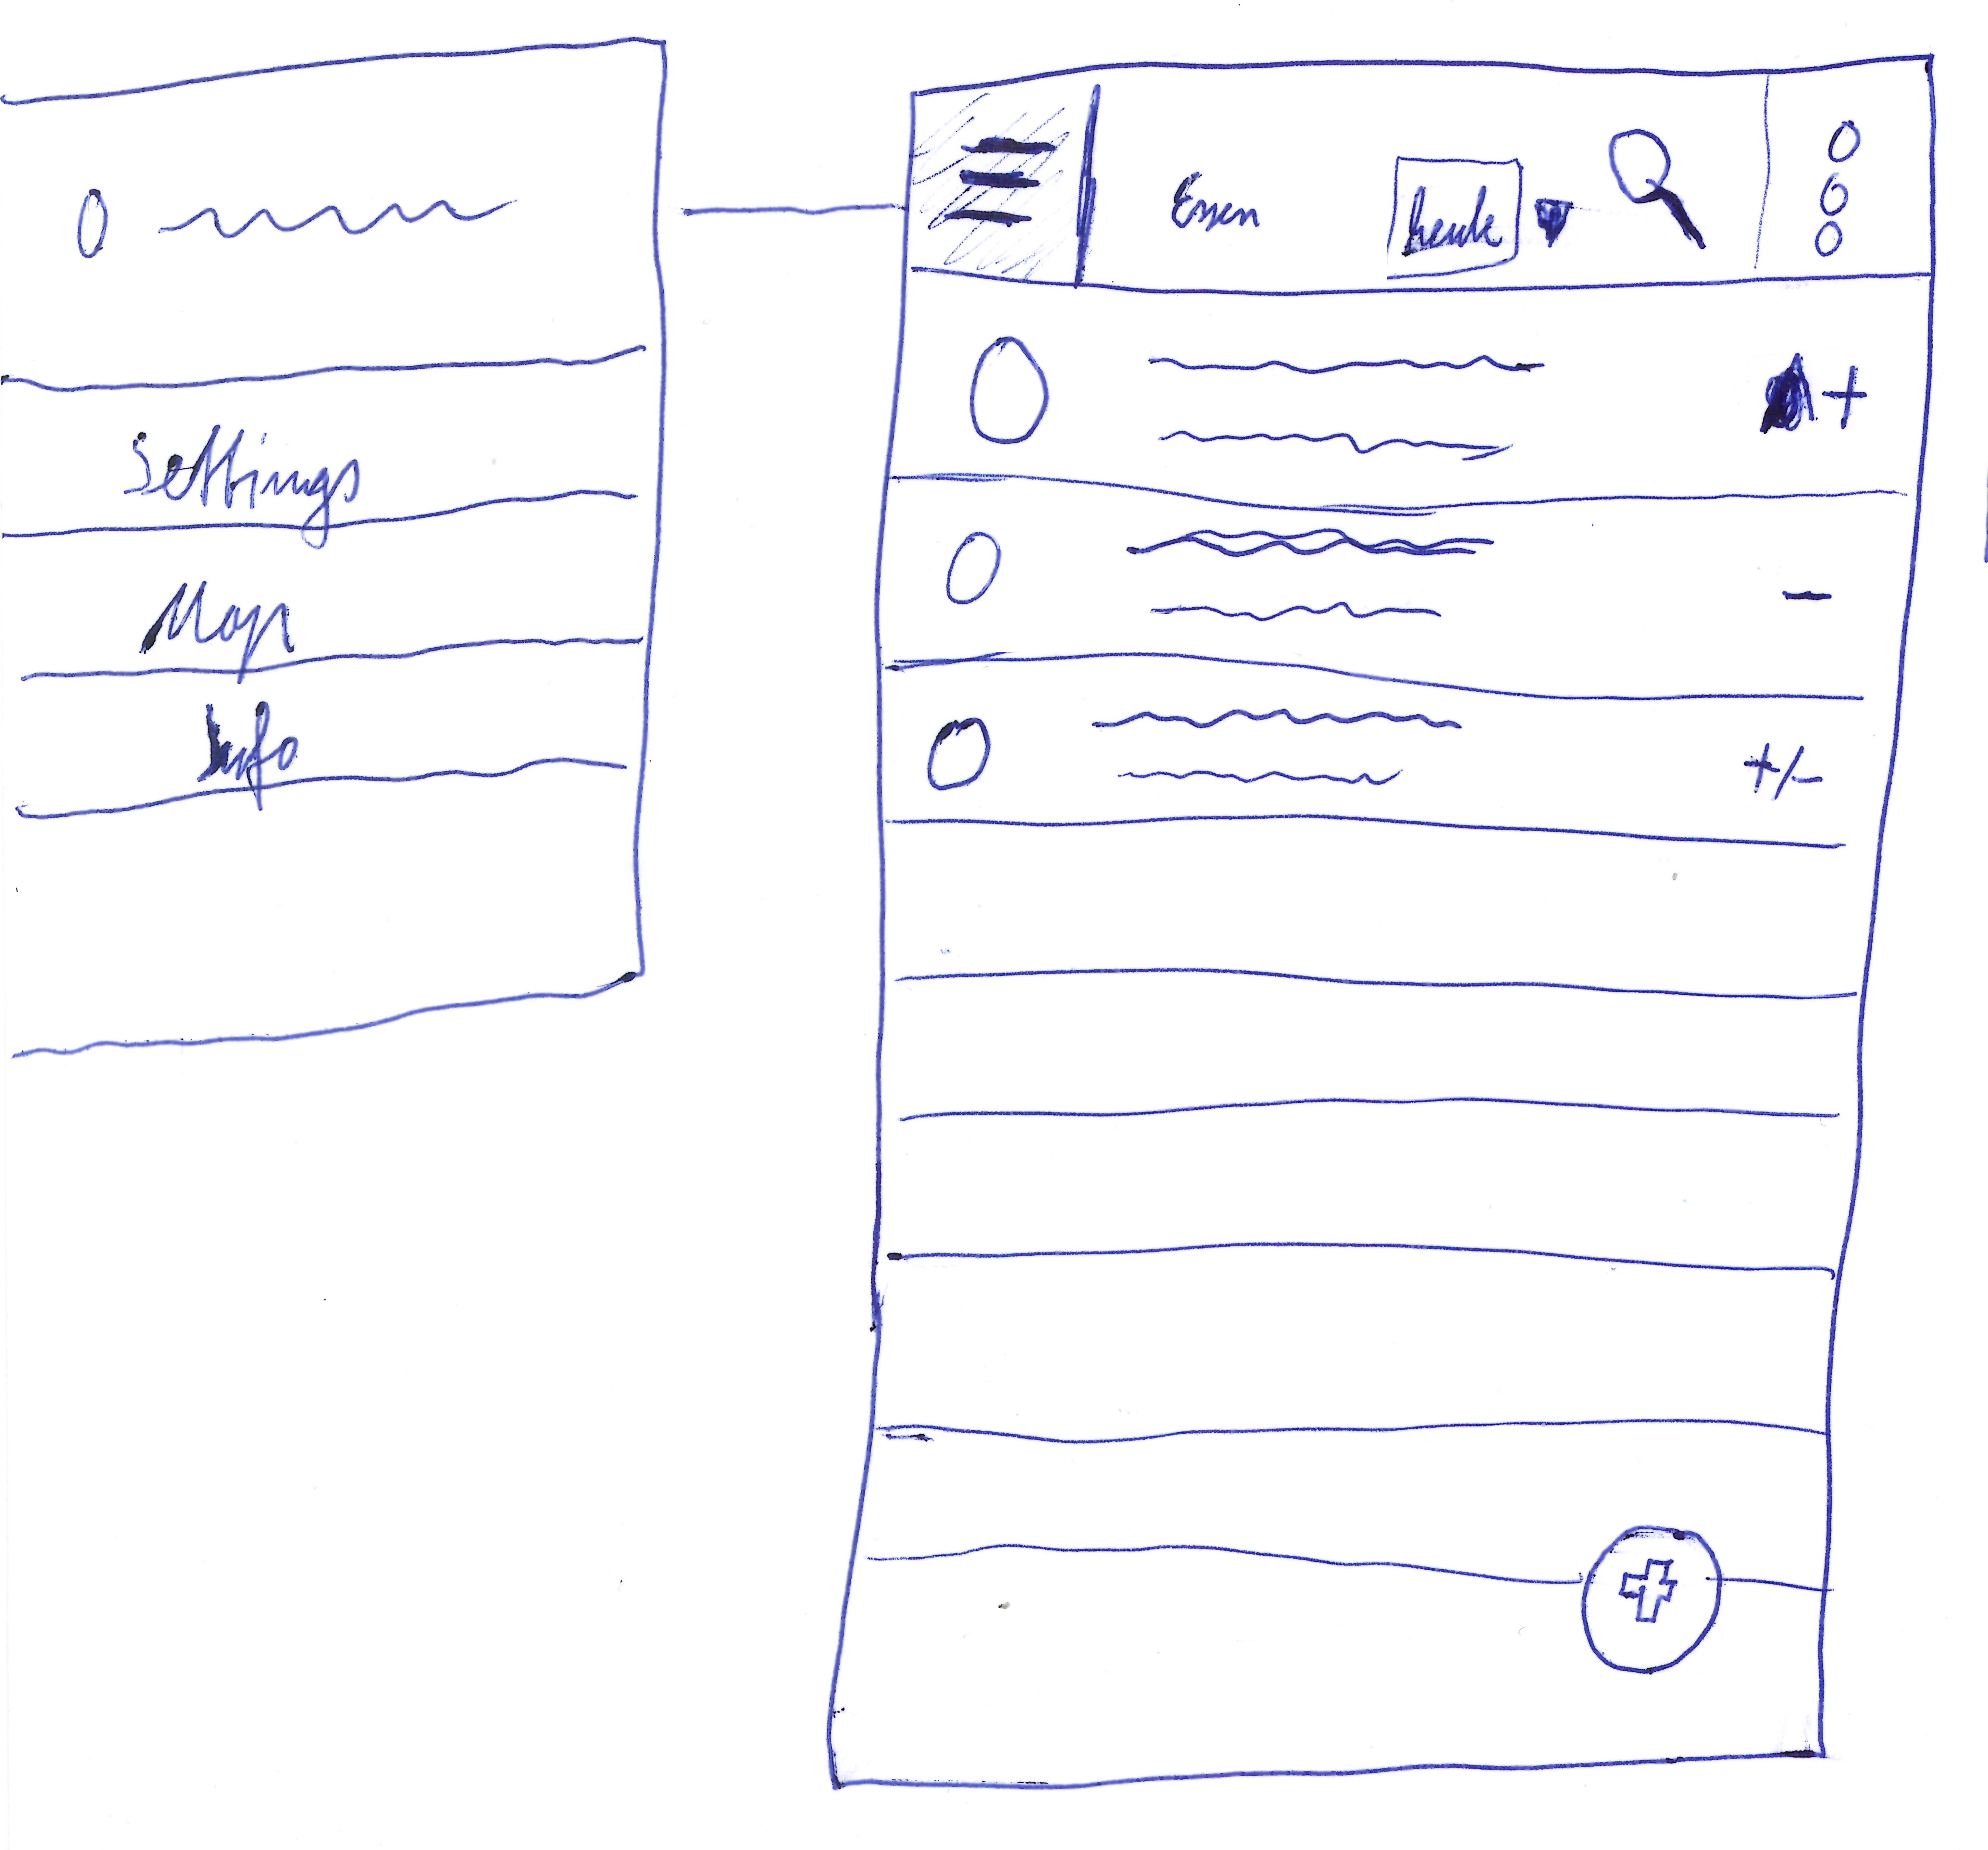 Settings
Map
Info
Essen heute
+
-
+/-